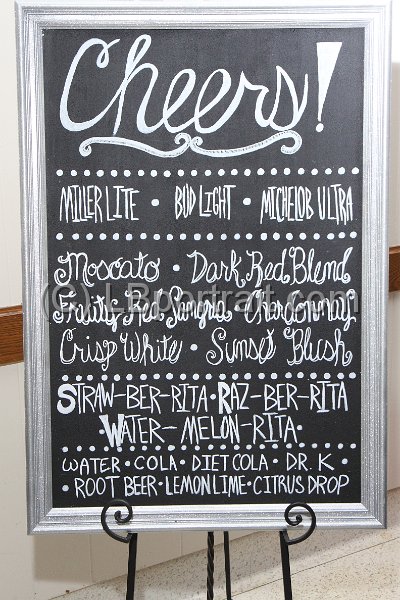 Cheers!
MILLER LITE • BUD LIGHT • MICHELOB ULTRA
Moscato • Dark Red Blend
Fruity Red Sangria • Chardonnay
(C) LBportrait.com
Crisp White • Sunset Blush
STRAW-BER-RITA • RAZ-BER-RITA
WATER-MELON-RITA •
WATER • COLA • DIET COLA • DR. K •
ROOT BEER • LEMON LIME • CITRUS DROP